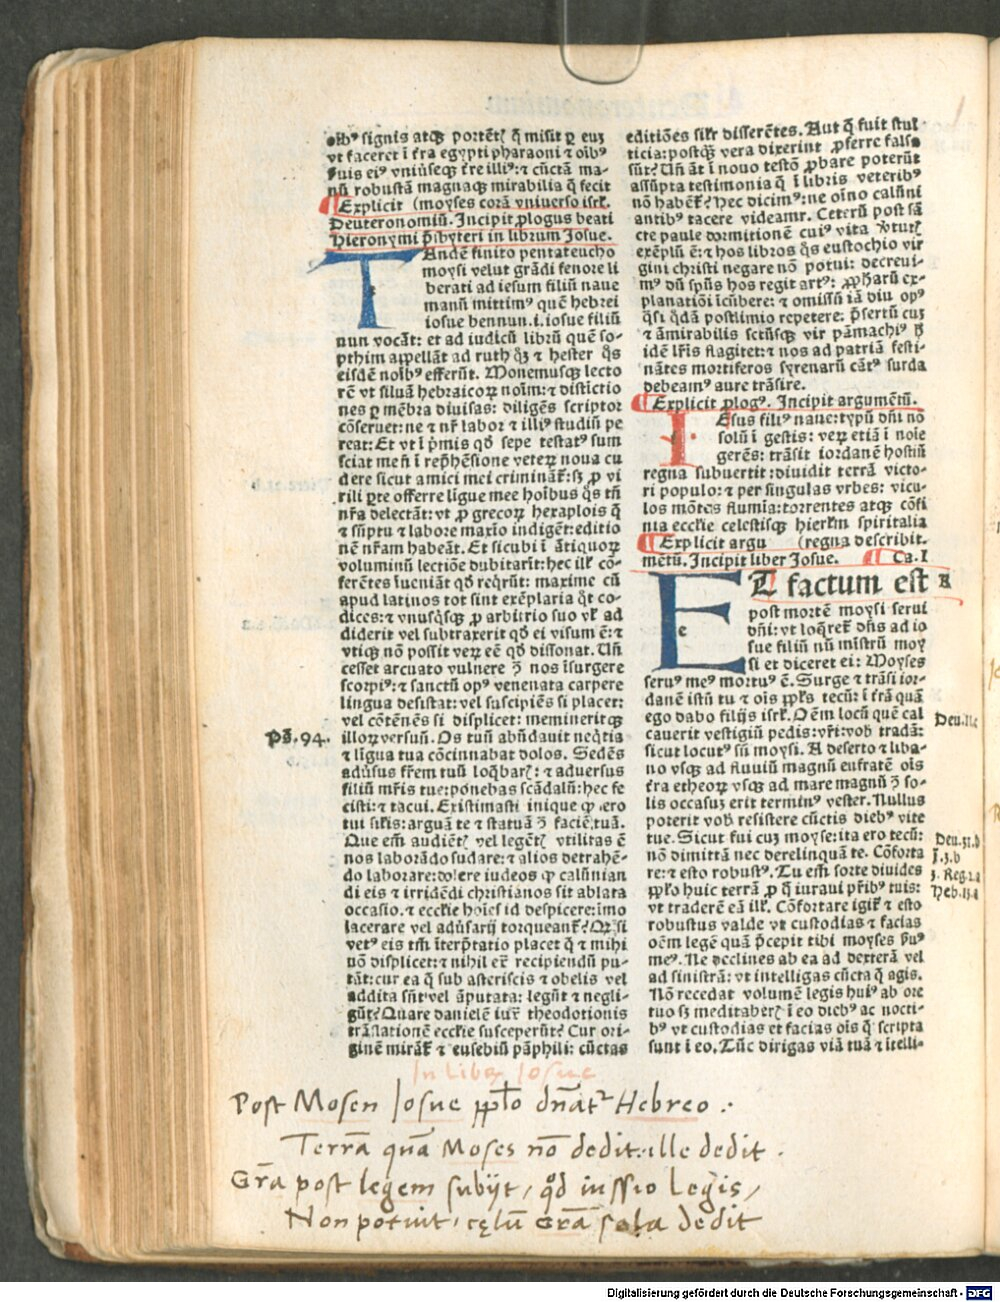 oibꝰ signis atqꝫ portēt͛ q̄ misit ꝑ euꝫ
vt faceret ī t̄ra egypti pharaoni ⁊ oībꝰ
suis eiꝰ vniuseqꝫ t̄re illiꝰ: ⁊ cūctā ma-
nū robustā magnaqꝫ mirabilia q̄ fecit
Explicit (moyses corā vniuerso isrł.
Deuteronomiū. Incipit ꝓlogus beati
Hieronymi p̄sbyteri in librum Iosue.
TAndē finito pentateucho
moysi velut grādi fenore li
berati ad iesum filiū naue
manū mittimꝰ quē hebrei
iosue bennun .i. iosue filiū
nun vocāt: et ad iudicū librū quē so-
pthim appellāt ad ruth q̄ꝫ ⁊ hester q̄s
eisdē noībꝰ efferūt. Monemusqꝫ lecto
rē vt siluā hebraicoꝝ noīm: ⁊ distictio
nes ꝑ mēbra diuisas: diligēs scriptor
cōseruet: ne ⁊ nr̄ labor ⁊ illiꝰ studiū pe
reat: Et vt ī p̄mis qd̄ sepe testatꝰ sum
sciat me ñ ī rep̄hēsione veteꝝ noua cu
dere sicut amici mei crimināt̄: sꝫ ꝓ vi
rili ꝑte offerre līgue mee hoībus q̄s tn̄
nr̄a delectāt: vt ꝓ grecoꝝ hexaplois q̄
⁊ sūptu ⁊ labore maxīo indigēt: editio
nē nr̄am habeāt. Et sicubi ī ātiquoꝝ
voluminū lectiōe dubitarīt: hec ill̄ cō-
ferētes īueniāt qd̄ reqrūt: maxime cū
apud latinos tot sint exēplaria q̄t co-
dices: ⁊ vnusq̄sqꝫ ꝓ arbitrio suo vł ad
diderit vel subtraxerit qd̄ ei visum ē: ⁊
vtiqꝫ nō possit veꝝ eē qd̄ dissonat. Un̄
cesset arcuato vulnere ꝯ nos īsurgere
scorpiꝰ: ⁊ sanctū opꝰ venenata carpere
lingua desistat: vel suscipiēs si placet:
vel cōtēnēs si displicet: memineritqꝫ
Ps. 94.
illoꝝ versuū. Os tuū abūdauit neq̄tia
⁊ līgua tua cōcinnabat dolos. Sedēs
aduꝰsus fr̄em tuū loq̄bar͛: ⁊ aduersus
filiū mr̄is tue: ponebas scādalū: hec fe
cisti: ⁊ tacui. Existimasti inique ꝙ ero
tui siłis: arguā te ⁊ statuā ꝯ faciē tuā.
Que em̄ audiēt͛ vel legēt͛ vtilitas ē
nos laborādo sudare: ⁊ alios detrahē-
do laborare: dolere iudeos ꝙ calūnian
di eis ⁊ irridēdi christianos sit ablata
occasio. ⁊ eccłie hoīes id despicere: īmo
lacerare vel aduꝰsarij torqueant̄? Qꝫ si
vetꝰ eis tm̄ īterp̄tatio placet q̄ ⁊ mihi
nō displicet: ⁊ nihil ext̄ recipiendū pu-
tāt: cur ea q̄ sub asteriscis ⁊ obelis vel
addita sūt vel āputata: legūt ⁊ negli-
gūt? Quare danielē iux̄ theodotionis
trāslationē eccłie susceperūt? Cur ori-
ginē mirāt̄ ⁊ eusebiū pāphili: cūctas
editiōes sił̄r disserētes. Aut q̄ fuit stul
ticia: postqꝫ vera dixerint ꝓferre falsa
sūt? Un̄ āt ī nouo testō ꝓbare poterūt
assūpta testimonia q̄ ī libris veteribꝰ
nō habēt̄? Hec dicimꝰ: ne oīno calūni
antibꝰ tacere videamr̄. Ceterū post sā
cte paule dormitionē cuiꝰ vita ꝟtut͛
exēplū ē: ⁊ hos libros q̄s eustochio vir
gini christi negare nō potui: decreui-
mꝰ dū spūs hos regit artꝰ: ꝓphar̄ū ex-
planatiōi īcūbere: ⁊ omissū iā diu opꝰ
q̄si q̄dā postlimio repetere: p̄sertū cuꝫ
⁊ āmirabilis sctūsqꝫ vir pāmachiꝰ h̄
idē lr̄is flagitet: ⁊ nos ad patriā festi-
nātes mortiferos syrenarū cātꝰ surda
debeamꝰ aure trāsire.
Explicit ꝓlogꝰ. Incipit argumētū.
IEsus filiꝰ naue: typū dn̄i nō
solū ī gestis: veꝝ etiā ī noīe
gerēs: trāsit iordanē hostiū
regna subuertit: diuidit terrā victo-
ri populo: ⁊ per singulas vrbes: vicu-
los mōtes flumia: torrentes atqꝫ cōfi
nia eccłie celestisqꝫ hierłm spiritalia
Explicit argu (regna describit.
mētū. Incipit liber Iosue. Ca. I
ET factum est A
post mortē moysi serui
dn̄i: vt loq̄ret̄ dn̄s ad io
sue filiū nū mīstrū moy
si et diceret ei: Moyses
seruꝰ meꝰ mortuꝰ ē. Surge ⁊ trāsi ior-
danē istū tu ⁊ oīs ꝑpłs tecū: ī t̄rā quā
ego dabo filijs isrł. Oēm locū quē cal
Deu. 11.c
cauerit vestigiū pedis: vr̄i: vob̄ tradā:
sicut locutꝰ sū moysi. A deserto ⁊ liba-
no vsqꝫ ad fluuiū magnū eufratē oīs
t̄ra etheoꝝ vsqꝫ ad mare magnū ꝯ so-
lis occasuꝫ erit terminꝰ vester. Nullus
poterit vob̄ resistere cūctis diebꝰ vite
tue. Sicut fui cuꝫ moyse: ita ero tecū:
Deu. 31.b
nō dimittā nec derelinquā te. Cōforta
I.3.b
re: ⁊ esto robustꝰ. Tu em̄ sorte diuides
3. Reg. 2.a
ꝑpło huic terrā ꝓ q̄ iuraui pr̄ibꝰ tuis:
Heb. 13.a
vt traderē eā ill̄. Cōfortare igit̄ ⁊ esto
robustus valde vt custodias ⁊ facias
oēm legē quā p̄cepit tibi moyses ẜuꝰ
meꝰ. Ne declines ab ea ad dexterā vel
ad sinistrā: vt intelligas cūcta q̄ agis.
Nō recedat volumē legis huiꝰ ab ore
tuo sꝫ meditaber͛ ī eo diebꝰ ac nocti-
bꝰ vt custodias et facias oīs q̄ scripta
sunt ī eo. Tūc dirigas viā tuā ⁊ ītelli-
In Libꝝ Iosue
Post Mosen Iosue pp̄lo dn̄at͛ Hebreo :
Terrā quā Moses nō dedit: ille dedit .
Gr̄a post legem subijt, qd̄ iussio Legis,
Non potuit, cęlū Gr̄a sola dedit
Digitalisierung gefördert durch die Deutsche Forschungsgemeinschaft - DFG